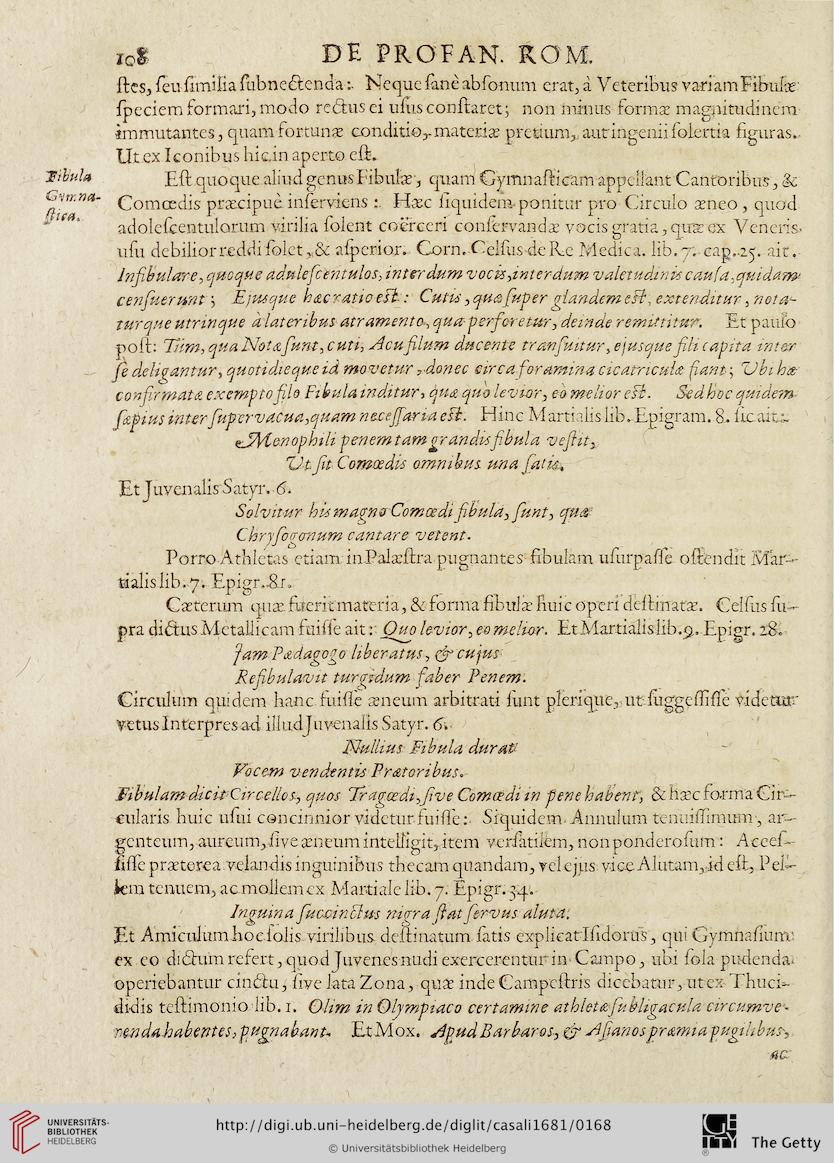 108 DE PROFAN. ROM.
ſtes, ſeu ſimilia ſubnectenda: Neque ſanè abſonum erat, à Veteribus variam Fibulæ
ſpeciem formari, modo rectus ei uſus conſtaret; non minus formæ magnitudinem
immutantes, quam fortunæ conditio, materiæ pretium, aut ingenii ſolertia figuras.
Ut ex Iconibus hic in aperto eſt.
Fibula
Gymna-
ſtica.
Eſt quoque aliud genus Fibulæ, quam Gymnaſticam appellant Cantoribus, &
Comœdis præcipuè inſerviens: Hæc ſiquidem ponitur pro Circulo æneo, quod
adoleſcentulorum virilia ſolent coërceri conſervandæ vocis gratia, quæ ex Veneris
uſu debilior reddi ſolet, & aſperior. Corn. Celſus de Re Medica. lib. 7. cap. 25. ait.
Infibulare, quoque aduleſcentulos, interdum vocis, interdum valetudinis cauſa, quidam
cenſuerunt; Ejuſque hæc ratio eſt: Cutis, quæ ſuper glandem eſt, extenditur, nota-
turque utrinque à lateribus atramento, qua perforetur, deinde remittitur. Et paulo
poſt: Tùm, qua Notæ ſunt, cuti, Acu filum ducente tranſuitur, ejusque fili capita inter
ſe deligantur, quotidieque id movetur, donec circa foramina cicatriculæ fiant; Ubi hæ
confirmatæ exempto filo Fibula inditur, quæ quò levior, eò melior eſt. Sed hoc quidem
ſæpius inter ſupervacua, quam neceſſaria eſt. Hinc Martialis lib. Epigram. 8. ſic ait:
Menophili penem tam grandis fibula veſtit,
Ut ſit Comœdis omnibus una ſatis.
Et Juvenalis Satyr. 6.
Solvitur his magno Comœdi fibula, ſunt, quæ
Chryſogonum cantare vetent.
Porro Athletas etiam in Palæſtra pugnantes fibulam uſurpaſſe oſtendit Mar-
tialis lib. 7. Epigr. 81.
Cæterum quæ fuerit materia, & forma fibulæ huic operi deſtinatæ. Celſus ſu-
pra dictus Metallicam fuiſſe ait: Quo levior, eo melior. Et Martialis lib. 9. Epigr. 28.
Jam Pædagogo liberatus, & cujus
Refibulavit turgidum faber Penem.
Circulum quidem hanc fuiſſe æneum arbitrati ſunt plerique, ut ſuggeſſiſſe videtur
vetus Interpres ad illud Juvenalis Satyr. 6.
Nullius Fibula durat
Vocem vendentis Prætoribus.
Fibulam dicit Circellos, quos Tragœdi, ſive Comœdi in pene habent, & hæc forma Cir-
cularis huic uſui concinnior videtur fuiſſe: Siquidem Annulum tenuiſſimum, ar-
genteum, aureum, ſive æneum intelligit, item verſatilem, non ponderoſum: Acceſ-
ſiſſe præterea velandis inguinibus thecam quandam, vel ejus vice Alutam, id eſt, Pel-
lem tenuem, ac mollem ex Martiale lib. 7. Epigr. 34.
Inguina ſuccinctus nigra ſtat ſervus aluta.
Et Amiculum hoc ſolis virilibus deſtinatum ſatis explicat Iſidorus, qui Gymnaſium
ex eo dictum refert, quod Juvenes nudi exercerentur in Campo, ubi ſola pudenda
operiebantur cinctu, ſive lata Zona, quæ inde Campeſtris dicebatur, ut ex Thuci-
didis teſtimonio lib. 1. Olim in Olympiaco certamine athletæ ſubligacula circum ve-
renda habentes, pugnabant. Et Mox. Apud Barbaros, & Aſianos præmia pugilibus,
ac
UNIVERSITÄTS-
BIBLIOTHEK
HEIDELBERG
http://digi.ub.uni-heidelberg.de/diglit/casali1681/0168
© Universitätsbibliothek Heidelberg
GETTY
The Getty